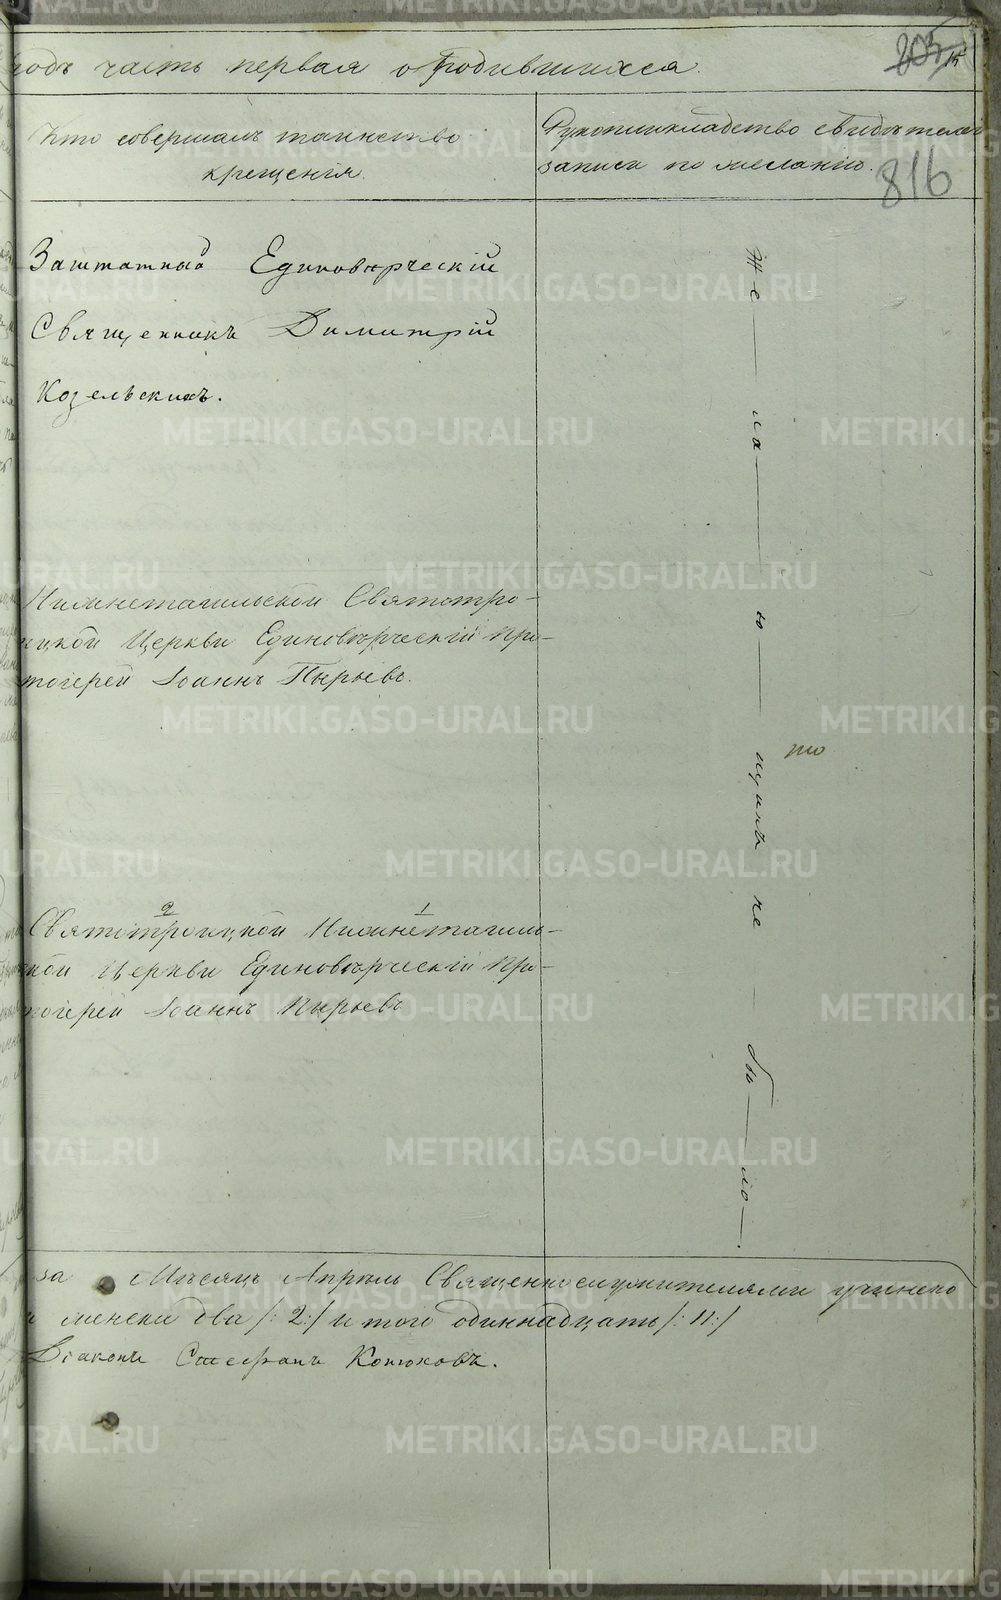 годъ часть первая о родившихся.
805
Кто совершалъ таинство
крещенія.
Рукоприкладство свидѣтелей
записи по желанію.
816
Заштатный Единовѣрческій
Священникъ Димитрій
Козельскихъ.
Нижнетагильской Святотро-
ицкой Церкви Единовѣрческій Про-
тоіерей Іоаннъ Пырьевъ.
2 1
Святотроицкой Нижнетагиль-
ской Церкви Единовѣрческій Про-
тоіерей Іоаннъ Пырьевъ
Же — ла — ю — щихъ не — бы — ло —.
то
за Мѣсяцъ Апрѣль Священнослужителями учинено
и женска два /: 2:/ итого одиннадцать /: 11:/
Діаконъ Стефанъ Конюховъ.
METRIKI.GASO-URAL.RU